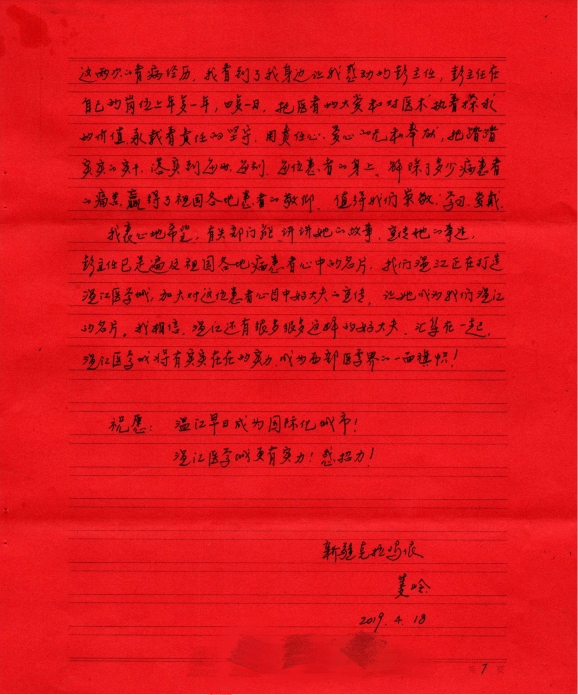 这两次的看病经历，我看到了我身边让我感动的彭主任，彭主任在
自己的岗位上年复一年，日复一日，把医者的大爱和对医术执着探求
的价值，承载着责任的坚守，用责任心、爱心的无私奉献，把踏踏
实实的实干，落实到每时、每刻、每位患者的身上。解除了多少病患者
的病患，赢得了祖国各地患者的敬仰，值得我们崇敬、学习、爱戴。
我衷心地希望，有关部门能讲讲她的故事，宣传她的事迹。
彭主任已是遍及祖国各地病患者心中的名片，我们温江正在打造
温江医学城，加大对这位患者心目中好大夫的宣传，让她成为我们温江
的名片。我相信，温江还有很多很多这样的好大夫，汇集在一起，
温江医学城将有实实在在的实力，成为西部医学界的一面旗帜！
祝愿：温江早日成为国际化城市！
温江医学城更有实力！感招力！
新疆克拉玛依
2019.4.18
第 7 页